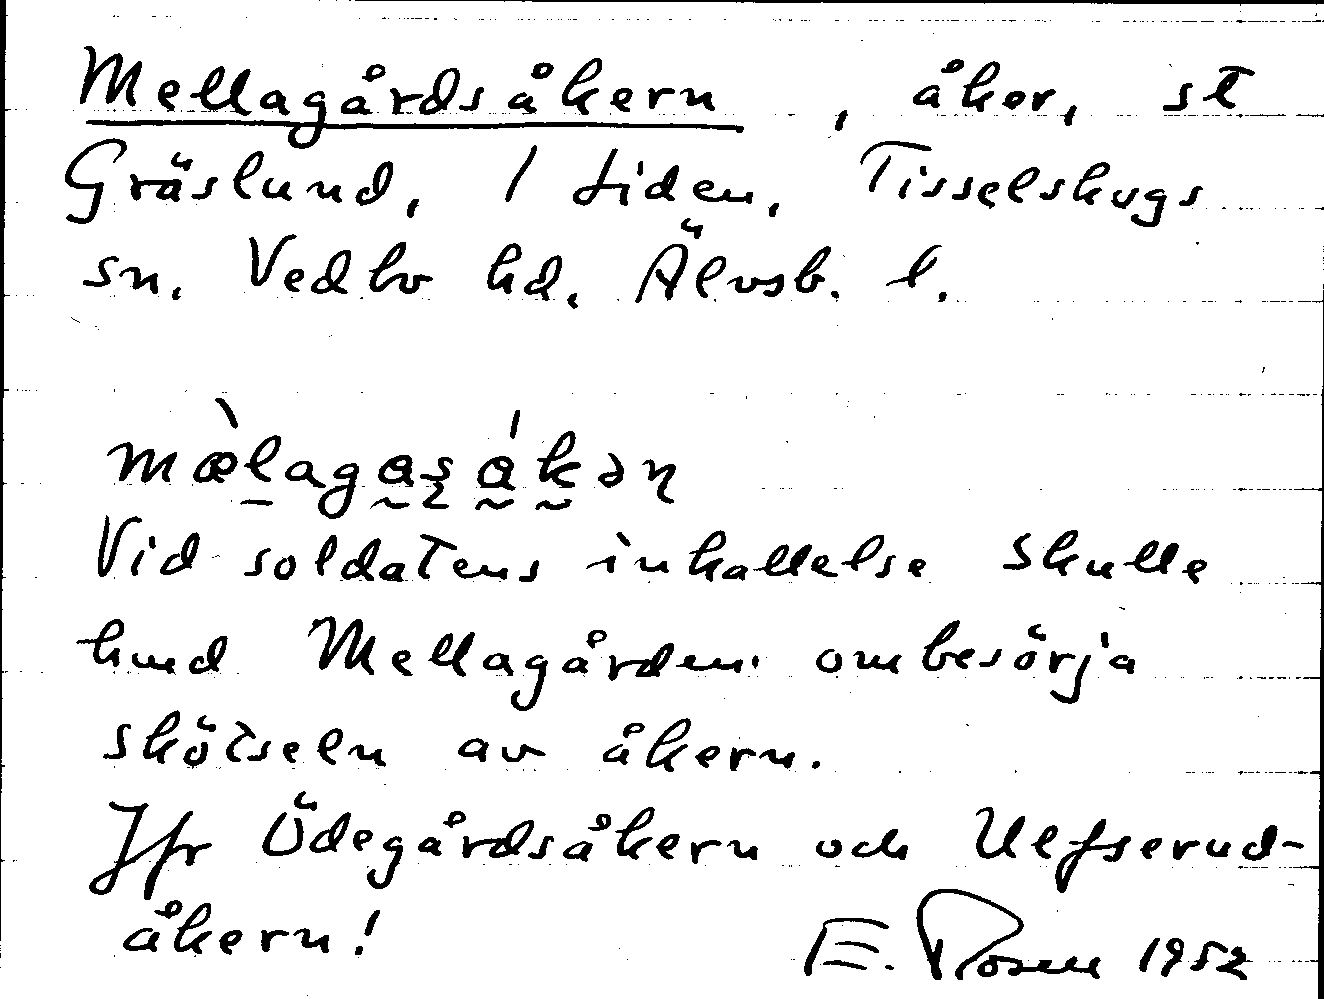 Mellagårdsåkern, åker, st
Gräslund, 1 Liden, Tisselskogs
sn. Vedbo hd. Älvsb. l.
mæ̀lagaʂákəɳ
Vid soldatens inkallelse skulle
hmd Mellagården ombesörja
skötseln av åkern.
Jfr Ödegårdsåkern och Ulfserud-
åkern!
E. Rosén 1952